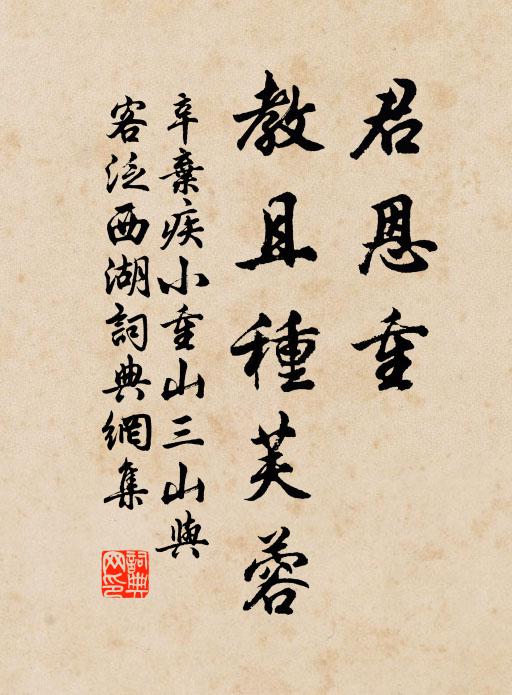 君恩重
教且種芙蓉
辛棄疾小重山三山與
客泛西湖詞典網集
詞典
网印